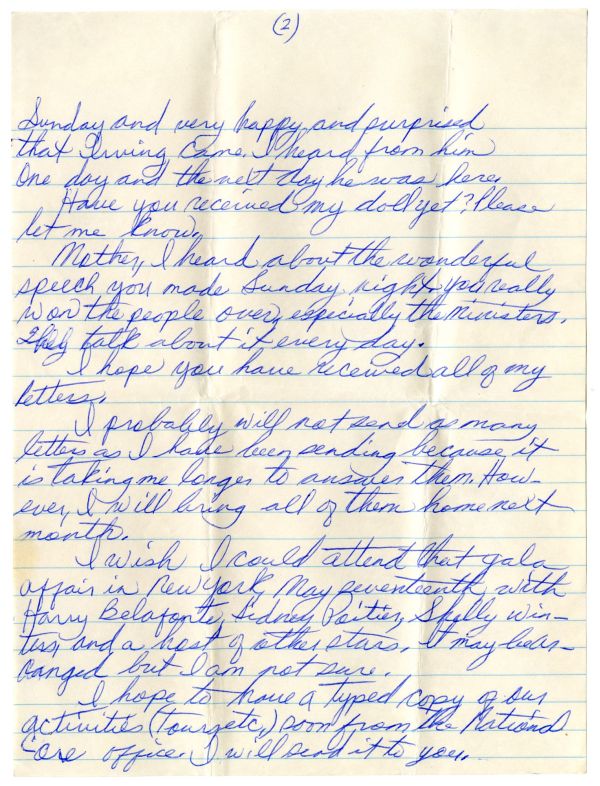 (2)
Sunday and very happy and surprised
that Irving came. I heard from him
One day and the next day he was here.
Have you received my doll yet? Please
let me know.
Mother, I heard about the wonderful
speech you made Sunday night. You really
won the people over, especially the ministers.
They talk about it every day.
I hope you have received all of my
letters.
I probably will not send as many
letters as I have been sending because it
is taking me longer to answer them. How-
ever, I will bring all of them home next
month.
I wish I could attend that gala
affair in New York, May seventeenth, with
Harry Belafonte, Sidney Poitier, Shelly Win-
ters, and a host of other stars. It may be ar-
ranged but I am not sure.
I hope to have a typed copy of our
activities (tours, etc.) soon from the National
Core office. I will send it to you.